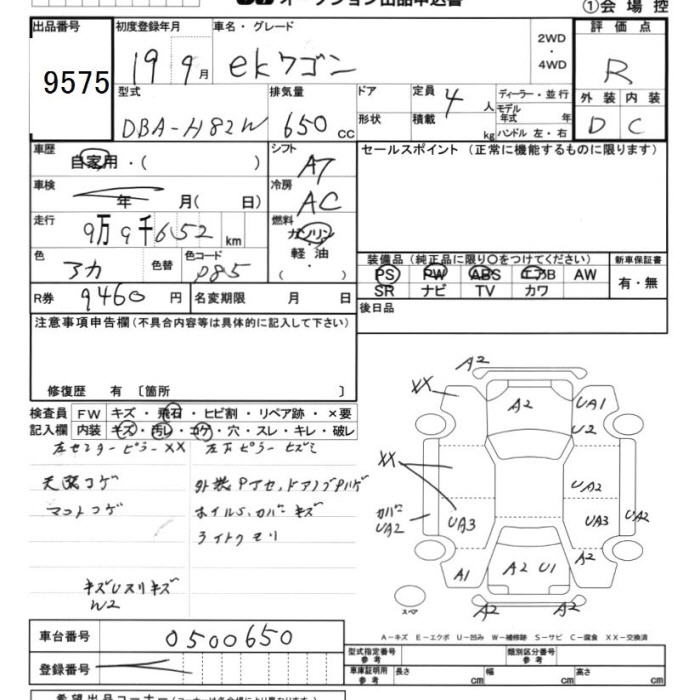 ①会場控
出品番号
9575
初度登録年月
19 9月
車名・グレード
ekワゴン
2WD
・
4WD
評価点
R
外装 内装
D C
型式
DBA-H82W
排気量
650cc
ドア
形状
定員 4 人
積載 kg
ディーラー・並行
モデル年式 年
ハンドル 左・右
車歴
自家用・( )
シフト
AT
セールスポイント (正常に機能するものに限ります)
車検
年 月( 日)
冷房
AC
走行
9万9千652km
燃料
ガソリン
軽油
・
( )
色
アカ
色替
色コード
P85
装備品(純正品に限り○をつけてください)
PS PW ABS エアB AW
SR ナビ TV カワ
新車保証書
有・無
R券 9460円
名変期限 月 日
後日品
注意事項申告欄(不具合内容等は具体的に記入して下さい)
修復歴 有 〔箇所 〕
検査員記入欄
FW キズ・飛石・ヒビ割・リペア跡・×要
内装 キズ・汚レ・コゲ・穴・スレ・キレ・破レ
左センターピラーXX
左下ピラーヒズミ
天張コゲ
マットコゲ
ホイルS、カバーキズ
ライトクモリ
キズUスリキズ
W2
A2
XX
A2
UA1
U2
XX
UA2
カバー
UA2
UA3
UA3
UA2
A1
A2 U1
A2
スペア
A2
A2
A-キズ E-エクボ U-凹み W-補修跡 S-サビ C-腐食 XX-交換済
車台番号
0500650
登録番号
型式指定番号
参考
類別区分番号
参考
車庫証明用
参考
長さ cm
幅 cm
高さ cm